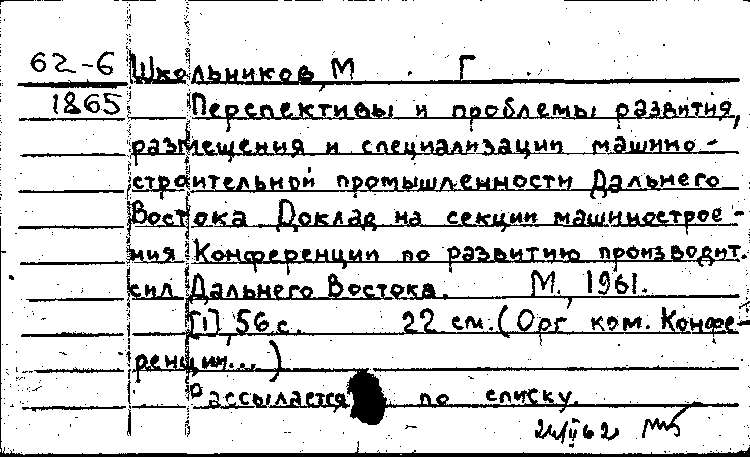 62-6 Школьников, М. Г.
1865 Перспективы и проблемы развития,
размещения и специализации машино-
строительной промышленности Дальнего
Востока Доклад на секции машинострое-
ния Конференции по развитию производит.
сил Дальнего Востока. М., 1961.
[1], 56 с. 22 см. (Орг. ком. Конфе-
ренции...)
Рассылается по списку.